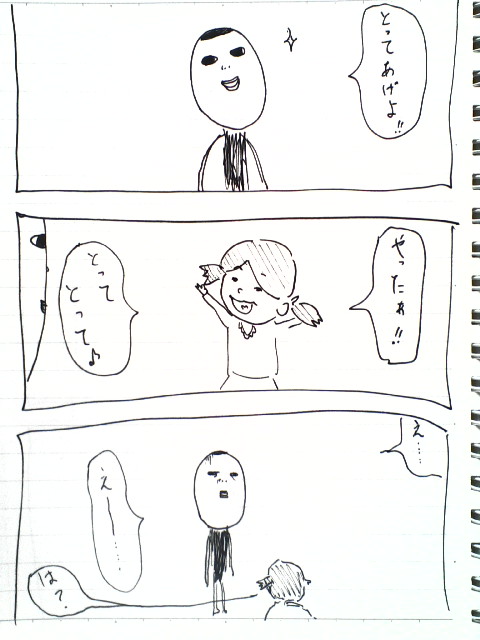 とってあげよ!!
やったぁ!!
とって
とって♪
え……
えー……
は?